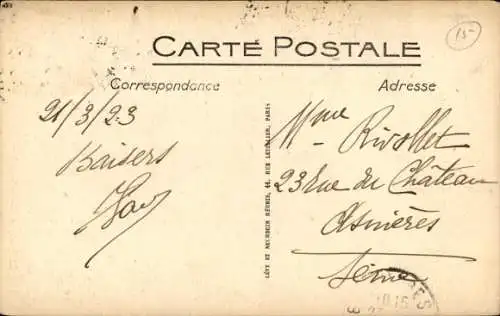 15-
CARTE POSTALE
Correspondance
Adresse
21/3/23
Baisers
LÉVY ET NEURDEIN RÉUNIS, 44, RUE LETELLIER, PARIS
Mme Rivollet
23 rue du Château
Asnières
Seine